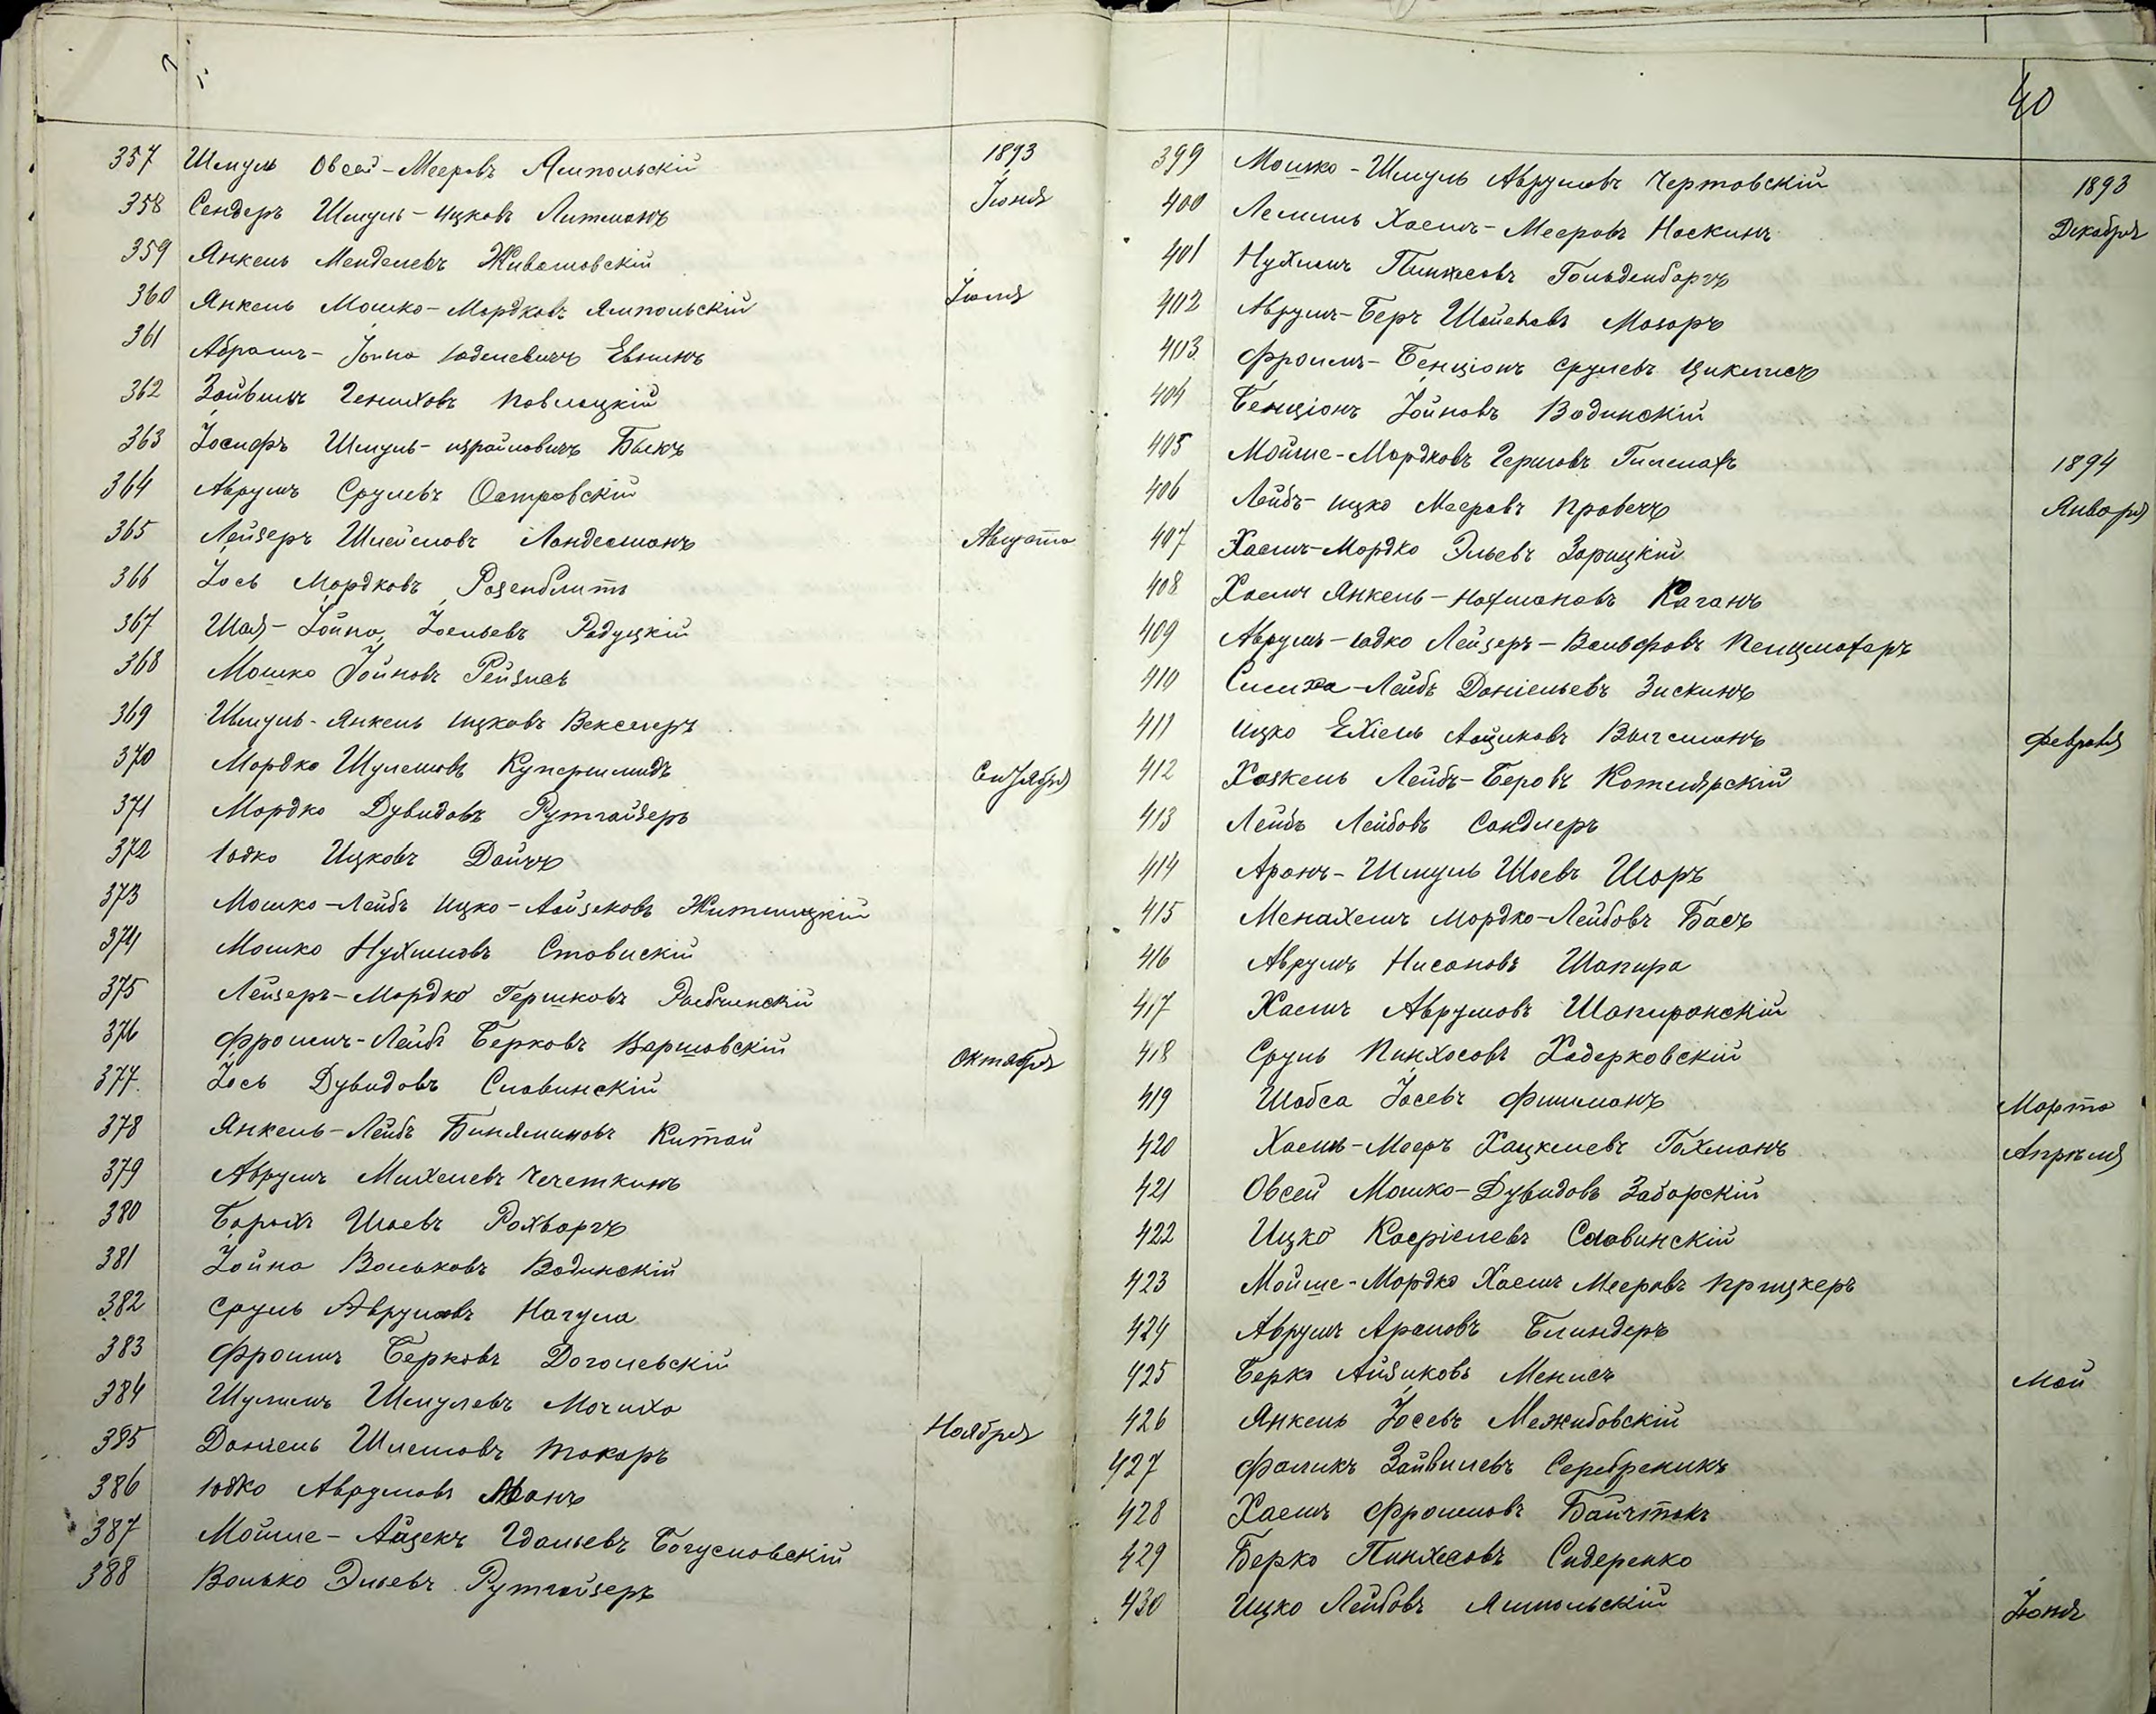 40
1893
357 Шмуль Овсей-Мееровъ Ямпольскій
Іюня
358 Сендеръ Шмуль-Ицковъ Литманъ
359 Янкель Менделевъ Животовскій
360 Янкель Мошко-Мордковъ Ямпольскій Іюля
361 Абрамъ-Іойна Юделевичъ Евнинъ
362 Зайвель Гениховъ Поволоцкій
363 Іосифъ Шмуль-Израйловичъ Быкъ
364 Аврумъ Срулевъ Островскій
365 Лейзеръ Шлёмовъ Ландесманъ Августа
366 Іось Мордковъ Розенблитъ
367 Шая-Іойна Іосьевъ Радуцкій
368 Мошко Іойновъ Рейзисъ
369 Шмуль-Янкель Ицковъ Векслеръ
370 Мордко Шулемовъ Купершмидъ Сентября
371 Мордко Дувидовъ Рутгайзеръ
372 Юдко Ицковъ Дайчъ
373 Мошко-Лейбъ Ицко-Айзековъ Житницкій
374 Мошко Нухимовъ Ставискій
375 Лейзеръ-Мордко Гершковъ Рыбчинскій
376 Фроимъ-Лейбъ Берковъ Варшавскій Октября
377. Іось Дувидовъ Славинскій
378 Янкель-Лейбъ Биняминовъ Китай
379 Аврумъ Михелевъ Чечеткинъ
380 Борухъ Шаевъ Рохваргъ
381 Іойна Вольковъ Водинскій
382 Сруль Аврумовъ Нагула
383 Фроимъ Берковъ Догалевскій
384 Шулимъ Шмулевъ Могила
385 Даніель Шлемовъ Токаръ Ноября
386 Юдко Аврумовъ
387 Мойше-Айзекъ Гдальевъ Богуславскій
388 Волько Эльевъ Рутгайзеръ
399 Мошко-Шмуль Аврумовъ Чертовскій 1893
400 Лемель Хаимъ-Мееровъ Носкинъ Декабря
401 Нухимъ Пинхесовъ Гольденбаргъ
402 Аврумъ-Беръ Мазоръ
403 Фроимъ-Бенціонъ Срулевъ Циклисъ
404 Бенціонъ Іойновъ Водинскій
405 Мойше-Мордковъ Гершовъ 1894
406 Лейбъ-Ицко Мееровъ Января
407 Хаимъ-Мордко Эльевъ Зарицкій
408 Хаимъ Янкель-Нахмановъ Каганъ
409 Аврумъ-Юдко Лейзеръ-Вольфовъ
410 Симха-Лейбъ Даніельевъ Зискинъ
411 Ицко Ехіель Айзиковъ Февраля
412 Хаскель Лейбъ-Беровъ Котлярскій
413 Лейбъ Лейбовъ Сандлеръ
414 Аронъ-Шмуль Шаевъ Шоръ
415 Менахемъ Мордко-Лейбовъ Басъ
416 Аврумъ Нисановъ Шапира
417 Хаимъ Аврумовъ Шапиранскій
418 Сруль Пинхосовъ Хадерковскій
419 Шабса Іосевъ Фишманъ Марта
420 Хаимъ-Мееръ Хацкелевъ Гохманъ Апрѣля
421 Овсей Мошко-Дувидовъ Заборскій
422 Ицко Касріелевъ Славинскій
423 Мойше-Мордко Хаимъ Мееровъ Прицкеръ
424 Аврумъ Ароновъ Блиндеръ
425 Берко Айзиковъ Менисъ Май
426 Янкель Іосевъ Межибовскій
427 Фаликъ Зайвилевъ Серебреникъ
428 Хаимъ Фроимовъ Байчтокъ
429 Берко Пинхесовъ Сидеренко
430 Ицко Лейбовъ Ямпольскій Іюня